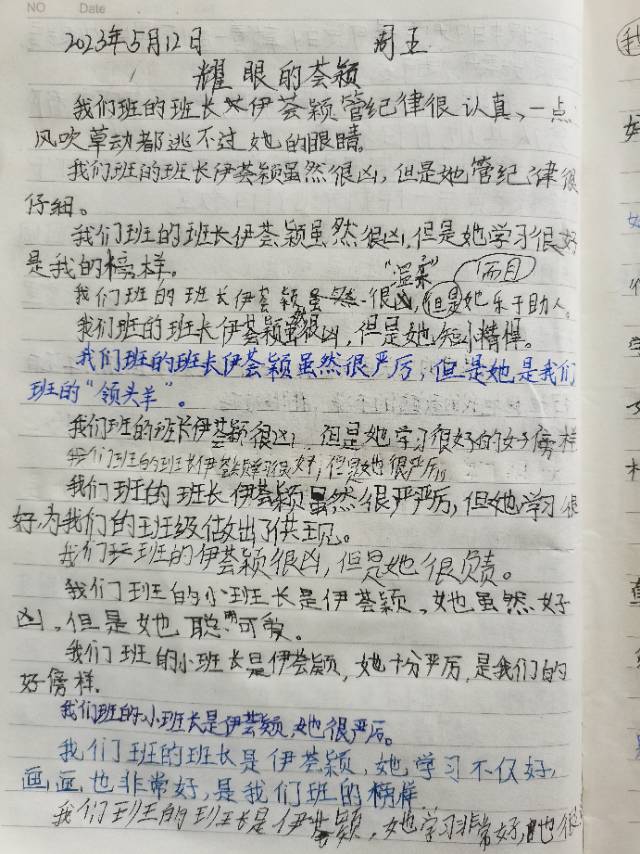 NO Date
2023年5月12日 周五
耀眼的荟颖
我们班的班长伊荟颖管纪律很认真,一点
风吹草动都逃不过她的眼睛。
我们班的班长伊荟颖虽然很凶,但是她管纪律很
仔细。
我们班的班长伊荟颖虽然很凶,但是她学习很好
是我的榜样。
"温柔" 而且
我们班的班长伊荟颖虽然很凶,但是她乐于助人。
我们班的班长伊荟颖很凶,但是她短小精悍。
我们班的班长伊荟颖虽然很严厉,但是她是我们
班的“领头羊”。
我们班的班长伊荟颖很凶,但是她学习很好的好傍样
我们班的班长伊荟颖学习很好,但是她很严厉。
我们班的班长伊荟颖虽然很严严厉,但她学习很
好,为我们的班级做出了供现。
我们班的伊荟颖很凶,但是她很负责。
我们班的小班长是伊荟颖,她虽然好
凶,但是她聪明可爱。
我们班的小班长是伊荟颖,她十分严厉,是我们的
好傍样.
我们班的小班长是伊荟颖,她很严厉。
我们班的班长是伊荟颖,她学习不仅好,
画画也非常好,是我们班的榜样
我们班的班长是伊荟颖,她学习非常好,她很